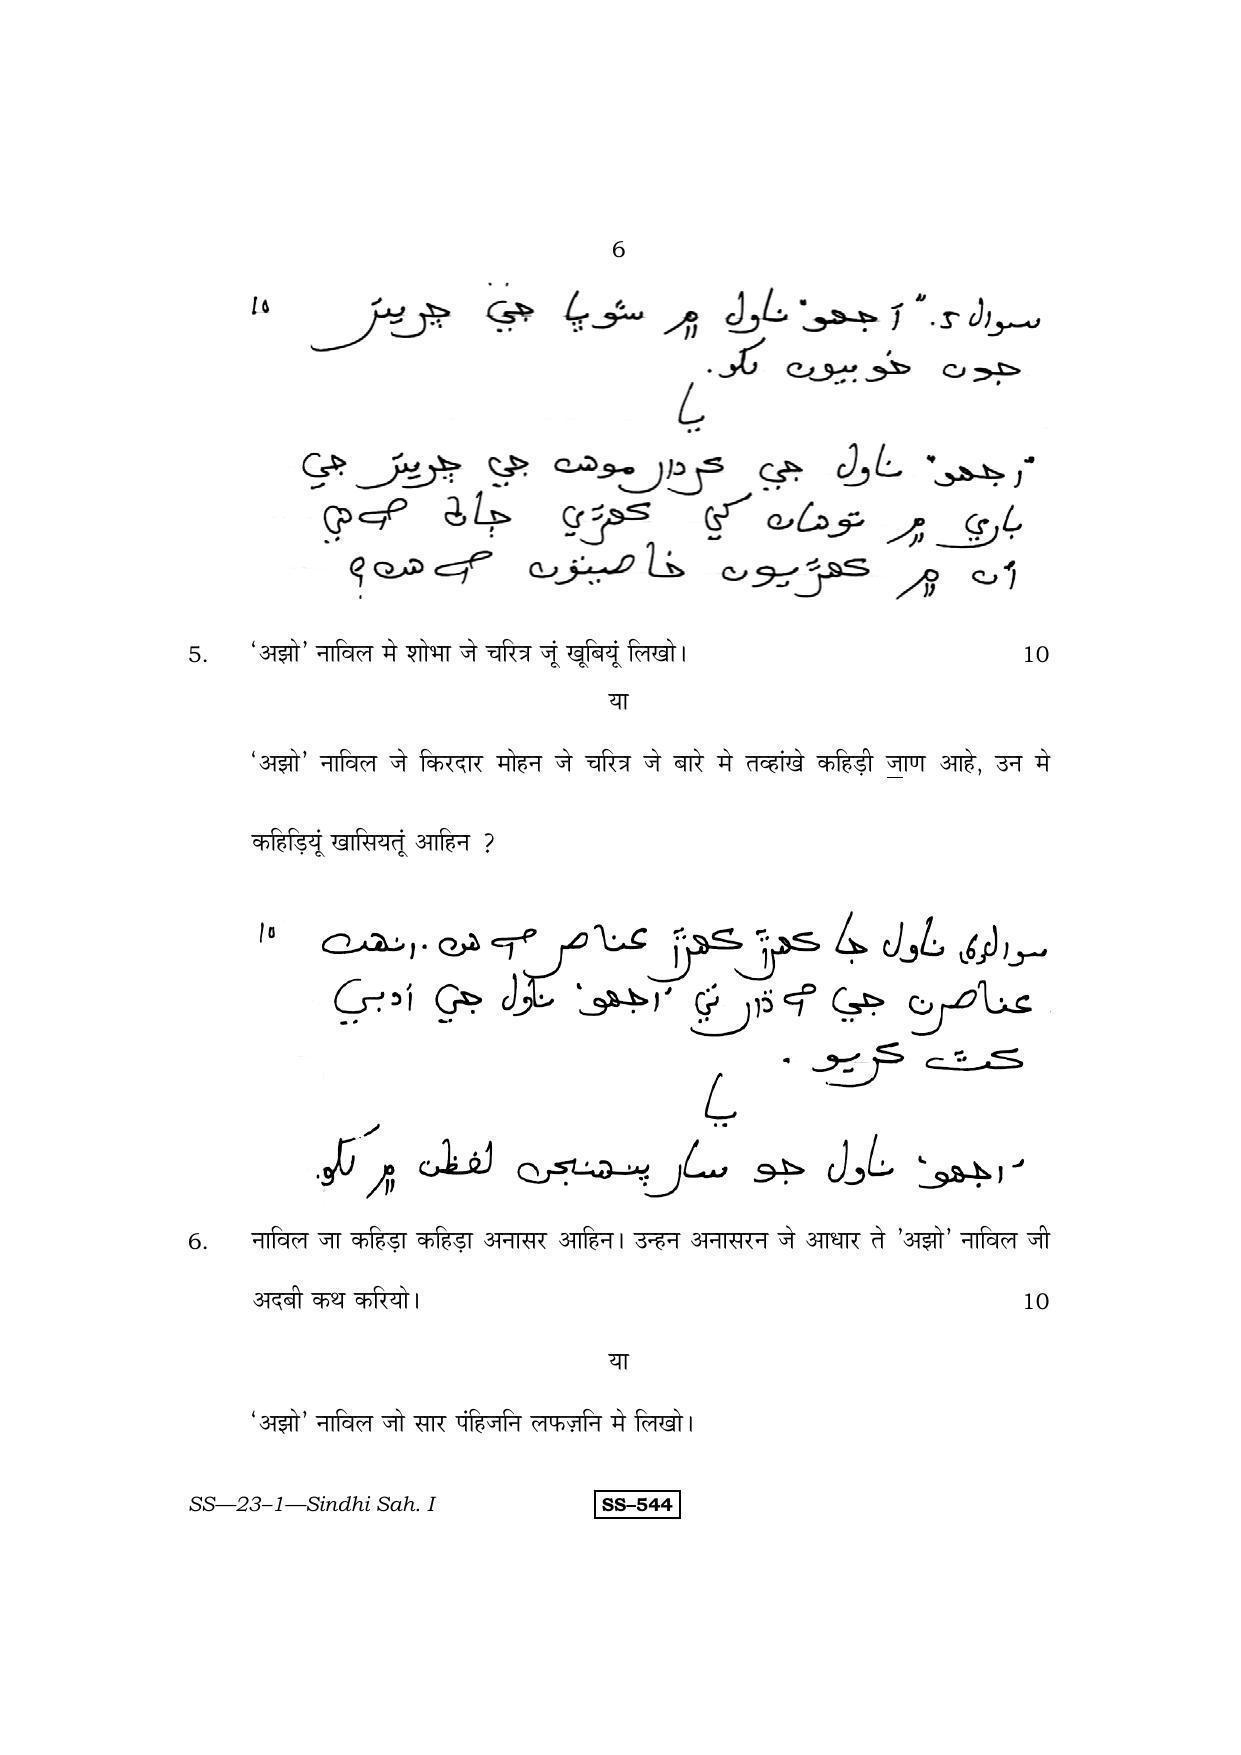 6
سوال 5. "اجهو" ناول ۾ شوڀا جي چرتر 10
جون خوبيون لکو.
يا
"اجهو" ناول جي ڪردار موهن جي چرتر جي
باري ۾ توهان کي ڪهڙي ڄاڻ آهي
اُن ۾ ڪهڙيون خاصيتون آهن؟
5. ‘अझो’ नाविल मे शोभा जे चरित्र जूं खूबियूं लिखो। 10
या
‘अझो’ नाविल जे किरदार मोहन जे चरित्र जे बारे मे तव्हांखे कहिड़ी जा॒ण आहे, उन मे
कहिड़ियूं खासियतूं आहिन ?
سوال 6. ناول جا ڪهڙا ڪهڙا عناصر آهن. انهن 10
عناصرن جي آڌار تي 'اجهو' ناول جي ادبي
ڪٿ ڪريو.
يا
'اجهو' ناول جو سار پنهنجن لفظن ۾ لکو.
6. नाविल जा कहिड़ा कहिड़ा अनासर आहिन। उन्हन अनासरन जे आधार ते ’अझो’ नाविल जी
अदबी कथ करियो। 10
या
‘अझो’ नाविल जो सार पंहिजनि लफज़नि मे लिखो।
SS—23–1—Sindhi Sah. I SS–544